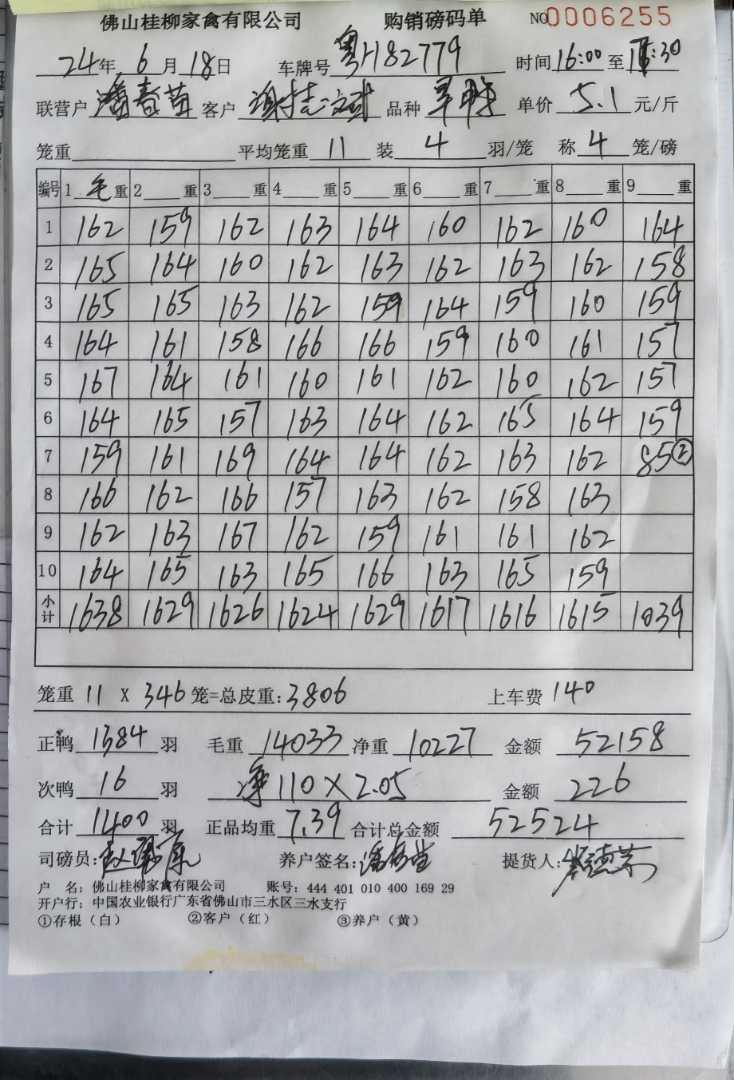 佛山桂柳家禽有限公司 购销磅码单 NO0006255
24年 6月 18日 车牌号 粤H82779 时间 16:00 至 :30
联营户 潘春苗 客户 品种 单价 5.1 元/斤
笼重 平均笼重 11 装 4 羽/笼 称 4 笼/磅
编号 1 毛 重 2 重 3 重 4 重 5 重 6 重 7 重 8 重 9 重
1 162 159 162 163 164 160 162 160 164
2 165 164 160 162 163 162 163 162 158
3 165 165 163 162 159 164 159 160 159
4 164 161 158 166 166 159 160 161 157
5 167 164 161 160 161 162 160 162 157
6 164 165 157 163 164 162 165 164 159
7 159 161 169 164 164 162 163 162 85②
8 166 162 166 157 163 162 158 163
9 162 163 167 162 159 161 161 162
10 164 165 163 165 166 163 165 159
小计 1638 1629 1626 1624 1629 1617 1616 1615 1039
笼重 11 X 346 笼=总皮重: 3806 上车费 140
正鸭 1384 羽 毛重 14033 净重 10227 金额 52158
次鸭 16 羽 净110×2.05 金额 226
合计 1400 羽 正品均重 7.39 合计总金额 52524
司磅员: 养户签名: 提货人:
户 名: 佛山桂柳家禽有限公司 账号: 444 401 010 400 169 29
开户行: 中国农业银行广东省佛山市三水区三水支行
①存根（白） ②客户（红） ③养户（黄）